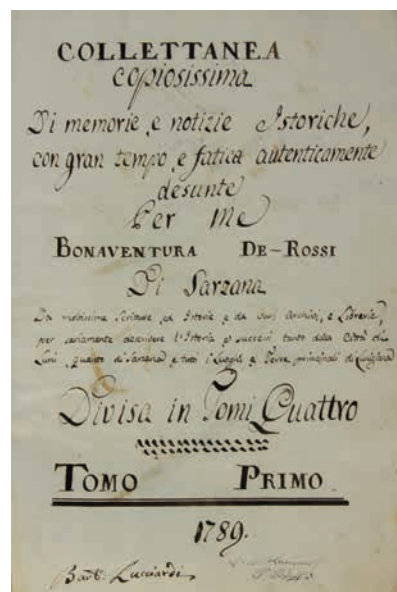 COLLETTANEA
copiosissima
Di memorie, e notizie Istoriche,
con gran tempo, e fatica autenticamente
desunte
Per Me
BONAVENTURA DE-ROSSI
Di Sarzana
Da moltissime Scritture, ed Istorie e da varj Archivj, e Librerie,
per seriamente descrivere l'Istoria, e successi tanto della Città di
Luni, quanto di Sarzana e tutti i Luoghi, e Terre principali di Lunigiana
Divisa in Tomi Quattro
TOMO PRIMO.
1789.
Bart. Lucciardi